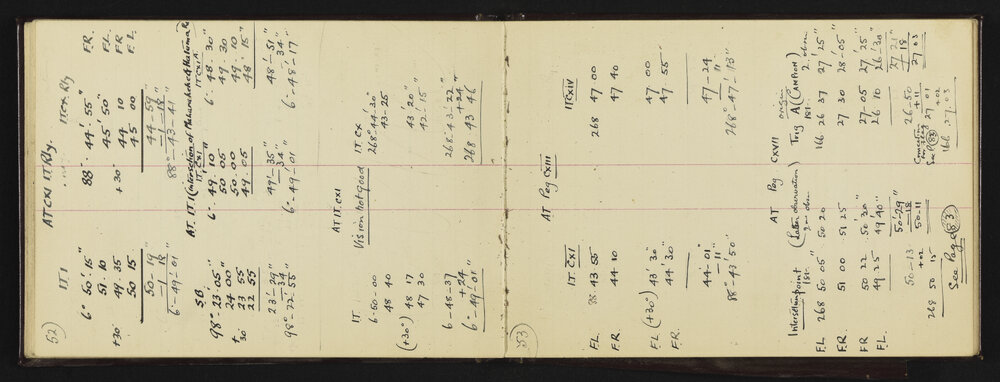 52
AT CXI IT Rly.
IT I
IT CX. Rly
6° 50' 15" 88° 44' 55" F.R.
51. 10 45' 50" F.L.
+30' 49. 35 +30 44 10 FR
50 15 45 00 F.L.
50 - 19" 44 - 59
- 1 - 18" - 1 - 18"
6° - 49' - 01" 88° - 43 - 41"
AT. IT. I (Intersection of
S.B. IT. CXI IT CXIA
98° 23' 05" 6° 49. 10 6° 48. 30"
24 00" 50 05 49 30
+30 23 55 50. 00 49. 10
22 55 49. 05 48 15"
23' - 29" 49' - 35" 48' - 51"
- 34" - 34" - 34"
98° - 22 - 55" 6° - 49' - 01" 6° - 48' - 17"
AT IT. CXI
Vision not good
IT IT. CX
6 - 50 - 00 268 - 44 - 30
48 40 43 - 25
(+30°) 48 17 43' 20"
47 30 42 - 15"
6 - 48 - 37 268 - 43 - 22"
+ 24 + 24"
6° - 49' - 01" 268 43 46
53
AT Peg CXIII
IT. CXI IT CXIV
F.L. 88 43 55 268 47 00
F.R. 44 10 47 40
F.L. (+30°) 43' 30' 47 00
F.R. 44' 30" 47 55"
44' - 01" 47 - 24
- 11" - 11"
88° - 43' 50" 268° - 47' - 13"
AT Peg CXVII
Intersection point (Later observation) Trig A (CAMPION)
1st. 2nd obsn origin 1st. 2. obsn
F.L. 268 50 05" 50. 20 166 26 37 27' 25"
F.R. 51 00 51 25 27 30 28 - 05"
FR 50 22 50' 30" 27 - 05 27' 25"
F.L. 49 25" 49' 40" 26 10 26' - 30"
50' - 29" 27' 21"
50 - 13 - 18 26 - 50 - 18
+ 02 50 - 11 + 11 27 03
268 50 15" 27 01
+ 02
See Page (83) 166 27 - 03
See P (83)